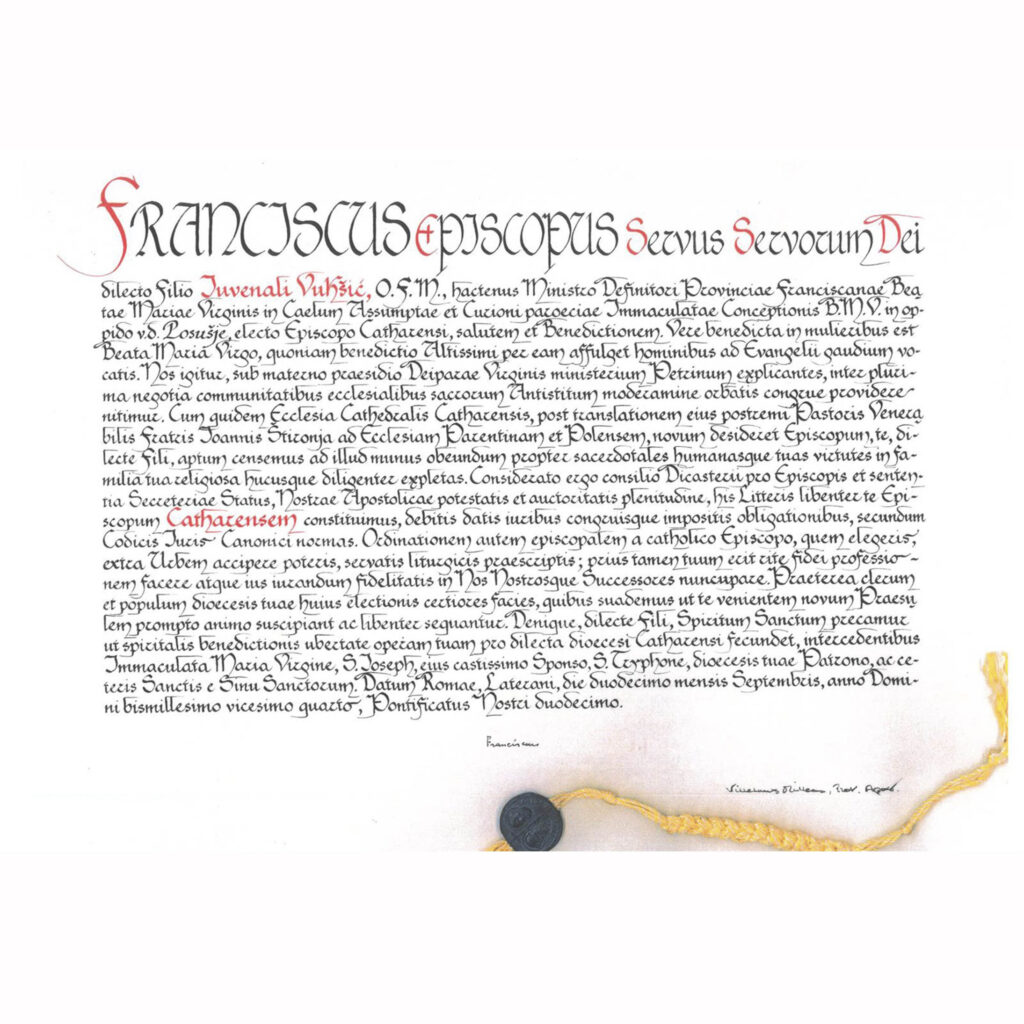 FRANCISCUS EPISCOPUS Servus Servorum Dei
dilecto Filio Iuvenali Vukšić, O. F. M., hactenus Ministro Definitori Provinciae Franciscanae Bea
tae Mariae Virginis in Caelum Assumptae et Curioni paroeciae Immaculatae Conceptionis B. M. V. in op-
pido v.d. Posušje, electo Episcopo Catharensi, salutem et Benedictionem. Vere benedicta in mulieribus est
Beata Maria Virgo, quoniam benedictio Altissimi per eam affulget hominibus ad Evangelii gaudium vo-
catis. Nos igitur, sub materno praesidio Deiparae Virginis ministerium Petrinum explicantes, inter pluri-
ma negotia communitatibus ecclesialibus sacrorum Antistitum moderamine orbatis congrue providere
nitimur. Cum quidem Ecclesia Cathedralis Catharensis, post translationem eius postremi Pastoris Venera
bilis Fratris Ioannis Štironja ad Ecclesiam Parentinam et Polensem, novum desideret Episcopum, te, di-
lecte Fili, aptum censemus ad illud munus obeundum propter sacerdotales humanasque tuas virtutes in fa-
milia tua religiosa hucusque diligenter expletas. Considerato ergo consilio Dicasterii pro Episcopis et senten-
tia Secreteriae Status, Nostrae Apostolicae potestatis et auctoritatis plenitudine, his Litteris libenter te Epi-
scopum Catharensem constituimus, debitis datis iuribus congruisque impositis obligationibus, secundum
Codicis Iuris Canonici normas. Ordinationem autem episcopalem a catholico Episcopo, quem elegeris,
extra Urbem accipere poteris, servatis liturgicis praescriptis; prius tamen tuum erit rite fidei professio-
nem facere atque ius iurandum fidelitatis in Nos Nostrosque Successores nuncupare. Praeterea clerum
et populum dioecesis tuae huius electionis certiores facies, quibus suademus ut te venientem novum Praesu
lem prompto animo suscipiant ac libenter sequantur. Denique, dilecte Fili, Spiritum Sanctum precamur
ut spiritalis benedictionis ubertate operam tuam pro dilecta dioecesi Catharensi fecundet, intercedentibus
Immaculata Maria Virgine, S. Ioseph, eius castissimo Sponso, S. Tryphone, dioecesis tuae Patrono, ac ce-
teris Sanctis e Sinu Sanctorum. Datum Romae, Laterani, die duodecimo mensis Septembris, anno Domi-
ni bismillesimo vicesimo quarto, Pontificatus Nostri duodecimo.
Franciscus